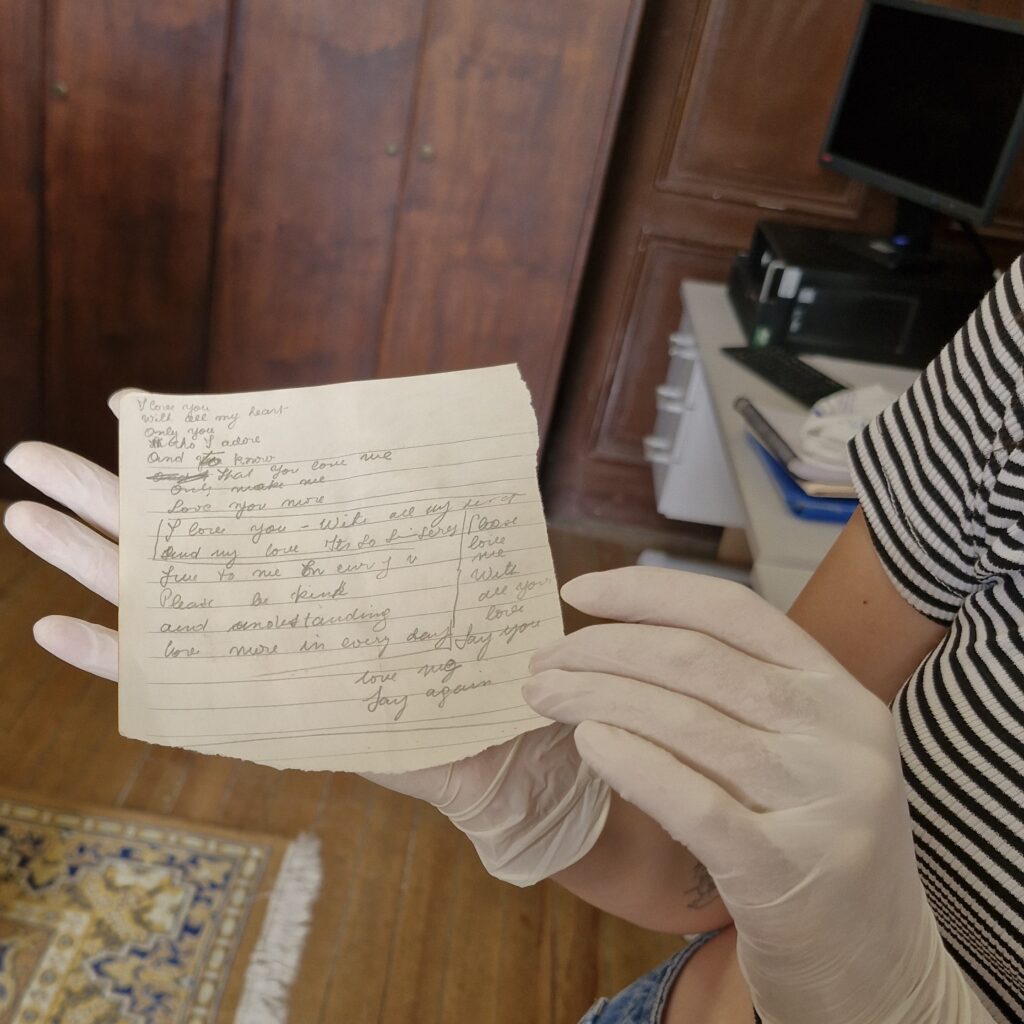 I love you
With all my heart
Only you
Who I adore
And to know
That you love me
Only make me
Love you more
I love you - With all my heart
And my love Its so sinsery
True to me in every
Please be kind
and understanding
love more in every day
Please
love
me
With
all you
love
Say you
love me
Say again